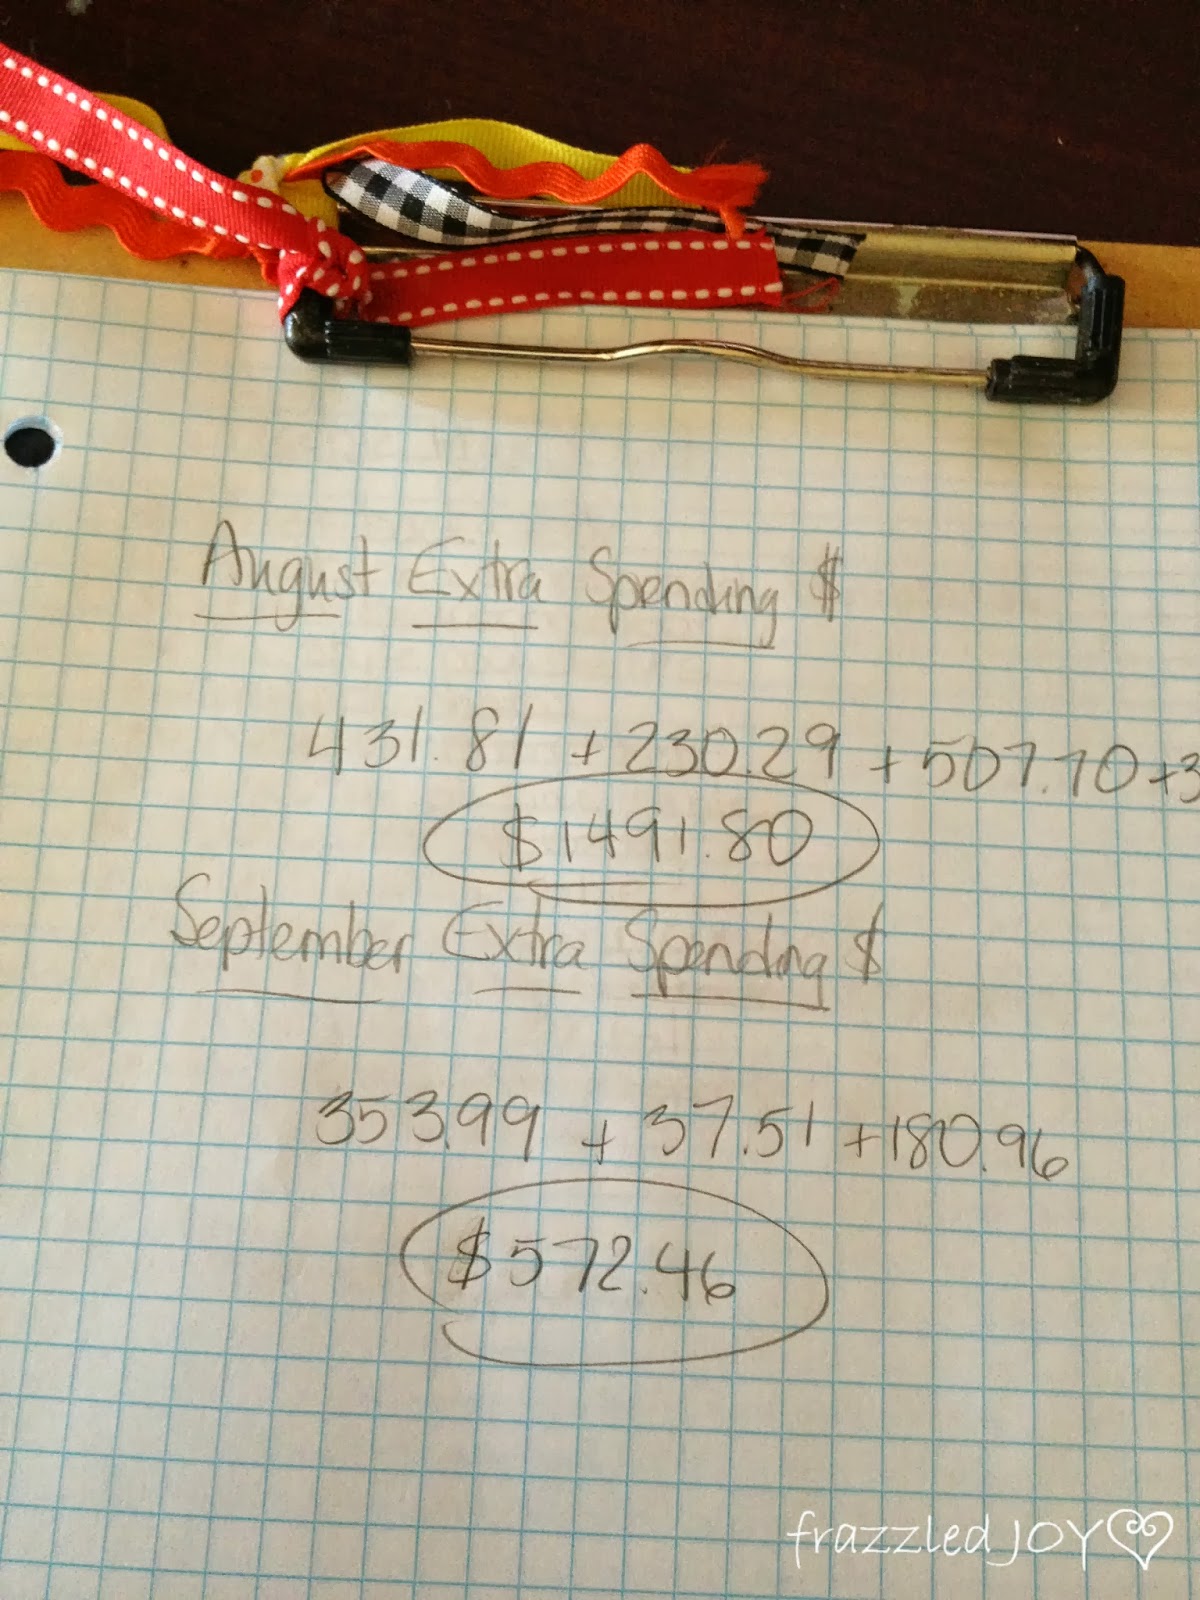 August Extra Spending $
431.81 + 230.29 + 507.70 + 3
$1491.80
September Extra Spending $
353.99 + 37.51 + 180.96
$572.46
frazzled JOY